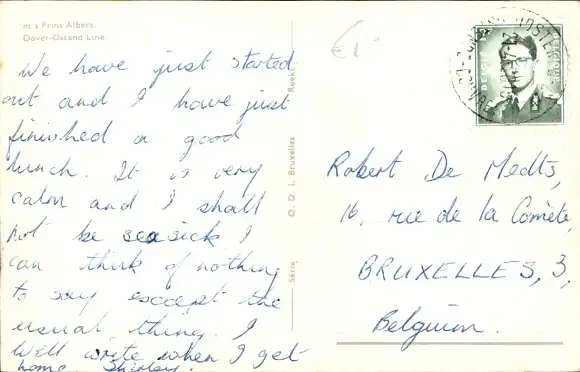 m s Prins Albert.
Dover-Ostend Line.
We have just started
out and I have just
finished a good
lunch. It is very
calm and I shall
not be seasick. I
can think of nothing
to say except the
usual thing. I
will write when I get
home. Shirley.
€1
Série
O. D. I. Bruxelles
BELGIE
Robert De Medts,
16, rue de la Comète,
BRUXELLES, 3,
Belgium.